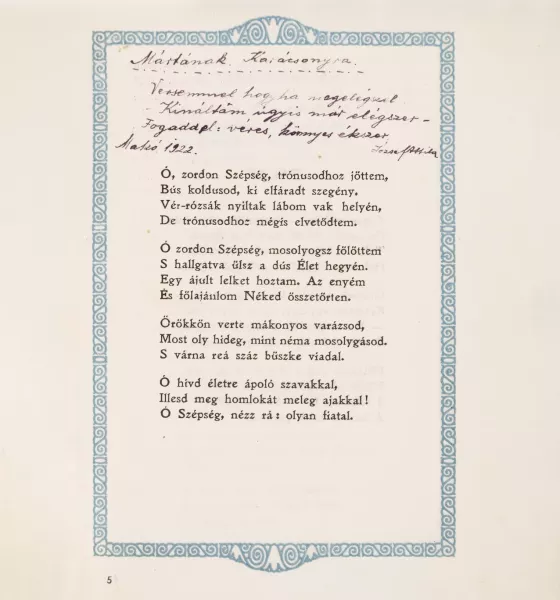 Mártának Karácsonyra.
Versemmel hogyha megelégszel
- Kináltám úgyis már elégszer -
Fogaddel: véres, könnyes ékszer
Makó 1922.
József Attila
Ó, zordon Szépség, trónusodhoz jöttem,
Bús koldusod, ki elfáradt szegény.
Vér-rózsák nyiltak lábom vak helyén,
De trónusodhoz mégis elvetődtem.
Ó zordon Szépség, mosolyogsz fölöttem
S hallgatva ülsz a dús Élet hegyén.
Egy ájult lelket hoztam. Az enyém
És fölajáulom Néked összetörten.
Örökkön verte mákonyos varázsod,
Most oly hideg, mint néma mosolygásod.
S várna reá száz büszke viadal.
Ó hívd életre ápoló szavakkal,
Illesd meg homlokát meleg ajakkal!
Ó Szépség, nézz rá: olyan fiatal.
5